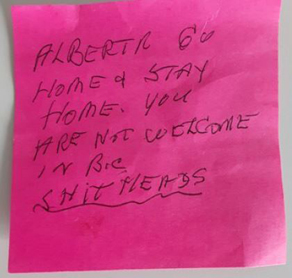 ALBERTA GO
HOME & STAY
HOME. YOU
ARE NOT WELCOME
IN B.C
SHIT HEADS